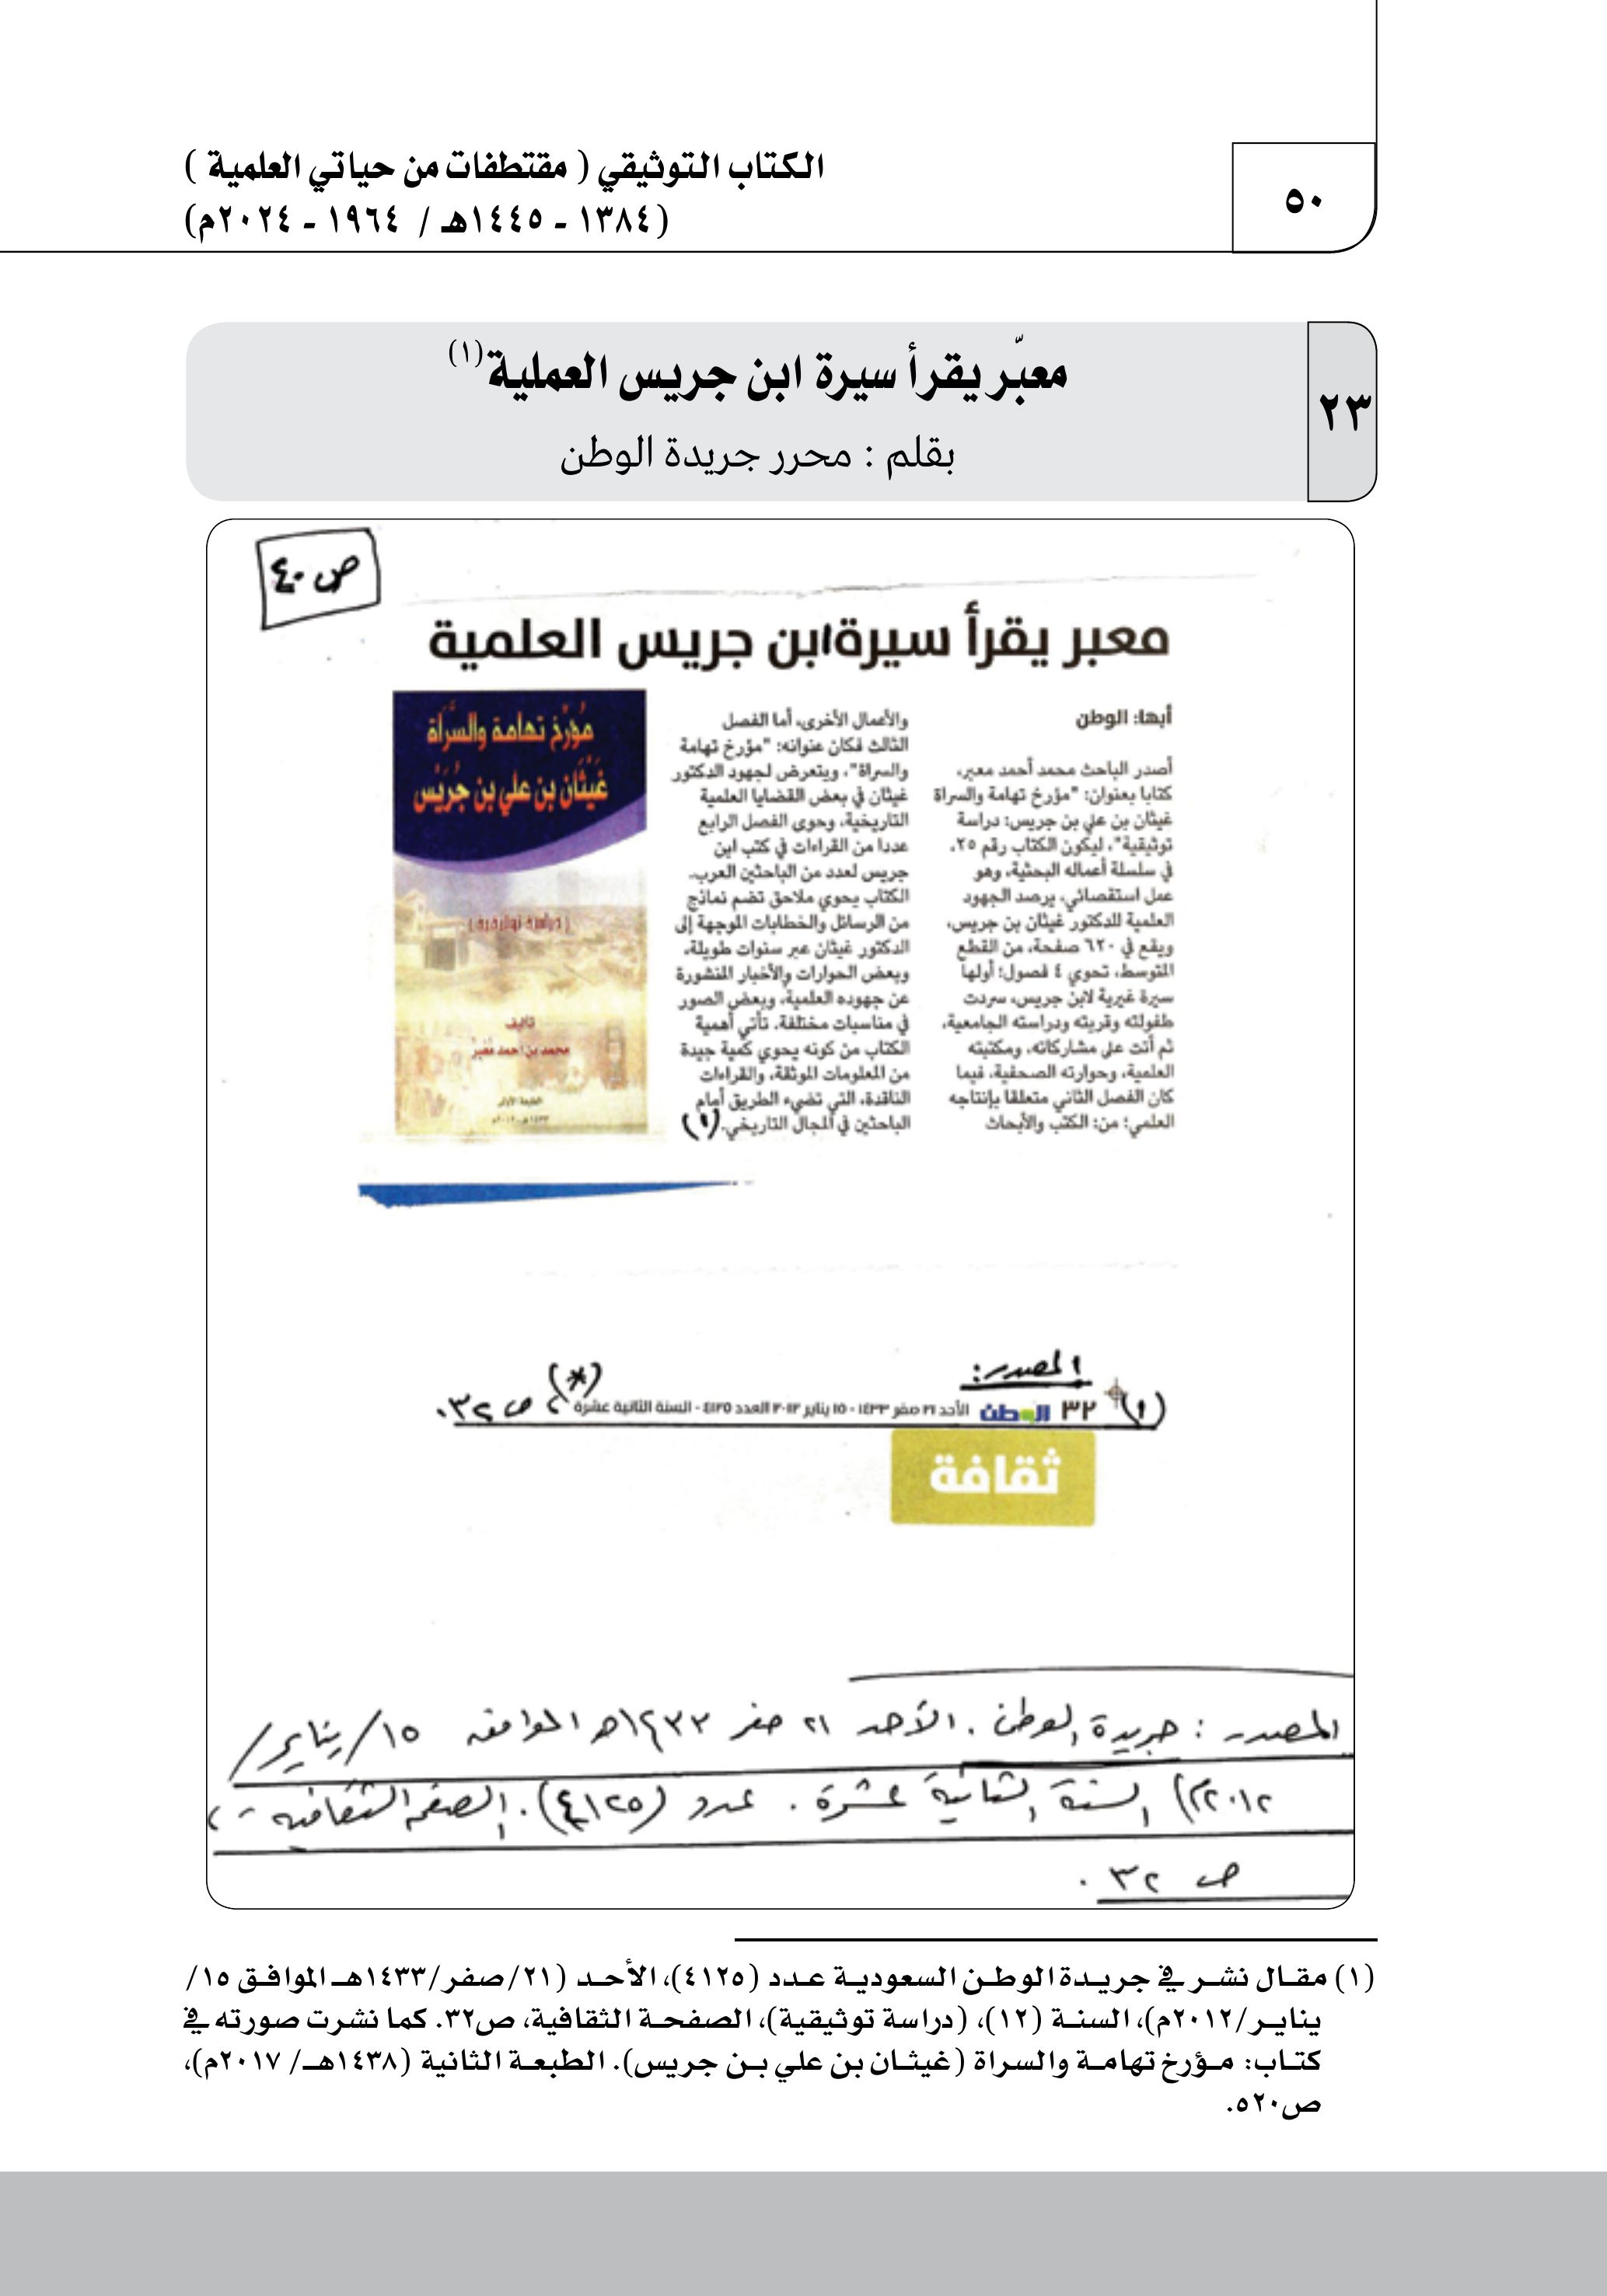 ٥٠
الكتاب التوثيقي ( مقتطفات من حياتي العلمية )
(١٣٨٤ - ١٤٤٥هـ / ١٩٦٤ - ٢٠٢٤م)
٢٣
معبّر يقرأ سيرة ابن جريس العملية(١)
بقلم : محرر جريدة الوطن
ص ٤٠
معبر يقرأ سيرة ابن جريس العلمية
أبها: الوطن
أصدر الباحث محمد أحمد معبر،
كتابا بعنوان: "مؤرخ تهامة والسراة
غيثان بن علي بن جريس: دراسة
توثيقية"، ليكون الكتاب رقم ٢٥،
في سلسلة أعماله البحثية، وهو
عمل استقصائي، يرصد الجهود
العلمية للدكتور غيثان بن جريس،
ويقع في ٦٢٠ صفحة، من القطع
المتوسط، تحوي ٤ فصول؛ أولها
سيرة غيرية لابن جريس، سردت
طفولته وقريته ودراسته الجامعية،
ثم أتت على مشاركاته، ومكتبته
العلمية، وحوارته الصحفية، فيما
كان الفصل الثاني متعلقا بإنتاجه
العلمي؛ من: الكتب والأبحاث
والأعمال الأخرى، أما الفصل
الثالث فكان عنوانه: "مؤرخ تهامة
والسراة"، ويتعرض لجهود الدكتور
غيثان في بعض القضايا العلمية
التاريخية، وحوى الفصل الرابع
عددا من القراءات في كتب ابن
جريس لعدد من الباحثين العرب.
الكتاب يحوي ملاحق تضم نماذج
من الرسائل والخطابات الموجهة إلى
الدكتور غيثان عبر سنوات طويلة،
وبعض الحوارات والأخبار المنشورة
عن جهوده العلمية، وبعض الصور
في مناسبات مختلفة. تأتي أهمية
الكتاب من كونه يحوي كمية جيدة
من المعلومات الموثقة، والقراءات
الناقدة، التي تضيء الطريق أمام
الباحثين في المجال التاريخي. (١)
مُؤرّخ تهامة والسَّرَاة
غَيْثَان بن علي بن جُرَيْس
( دراسة توثيقية )
تأليف
محمد بن أحمد مُعَبّر
الطبعة الأولى
١٤٣٣هـ - ٢٠١٢م
المصدر:
(١) ٣٢ الوطن الأحد ٢١ صفر ١٤٣٣ - ١٥ يناير ٢٠١٢ العدد ٤١٢٥ - السنة الثانية عشرة ، ص ٣٢. (*)
ثقافة
المصدر : جريدة الوطن . الأحد ٢١ صفر ١٤٣٣هـ الموافق ١٥/يناير/
٢٠١٢م) السنة الثانية عشرة . عدد (٤١٢٥). الصفحة الثقافية ،
ص ٣٢ .
(١) مقال نشر في جريدة الوطن السعودية عدد (٤١٢٥)، الأحد (٢١/صفر/١٤٣٣هـ الموافق ١٥/
يناير/٢٠١٢م)، السنة (١٢)، (دراسة توثيقية)، الصفحة الثقافية، ص٣٢. كما نشرت صورته في
كتاب: مؤرخ تهامة والسراة (غيثان بن علي بن جريس). الطبعة الثانية (١٤٣٨هـ/ ٢٠١٧م)،
ص٥٢٠.